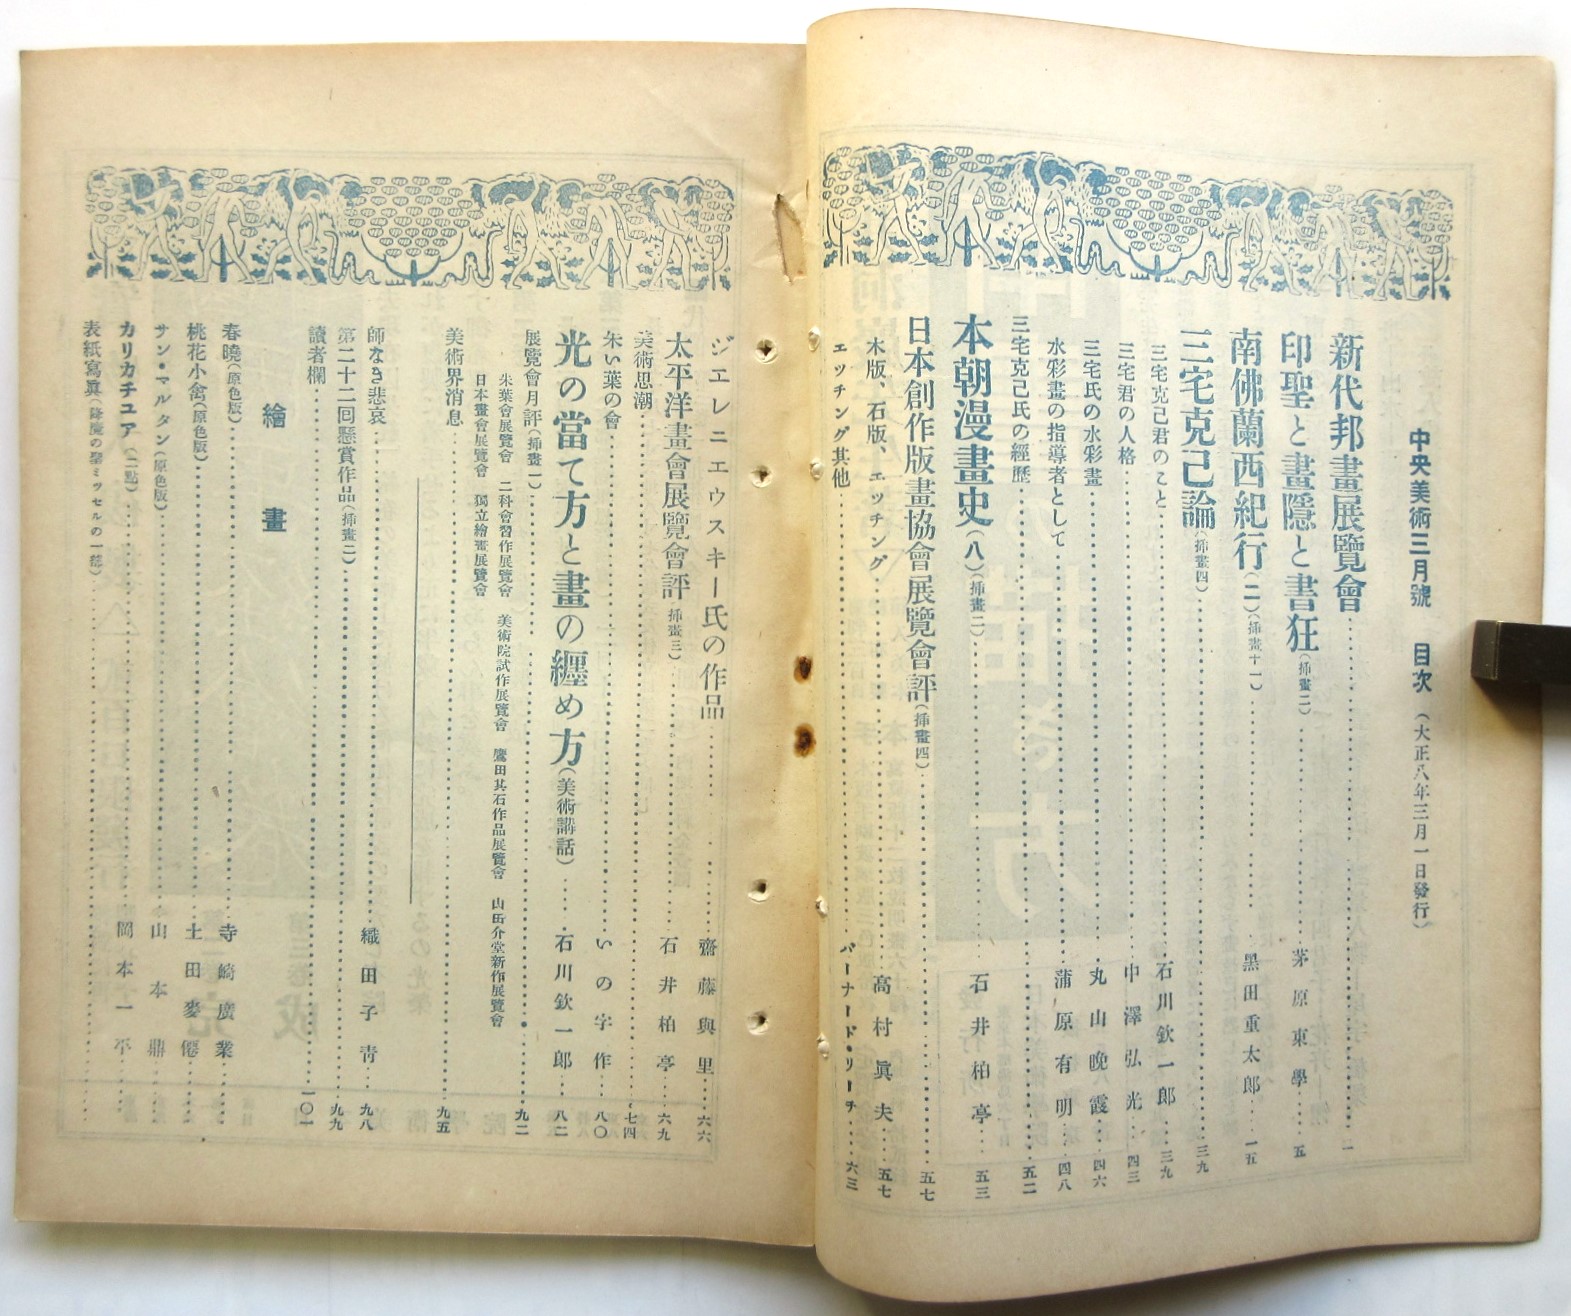 中央美術三月號　目次　（大正八年三月一日發行）
新代邦畫展覽會……一
印聖と畫隱と書狂（挿畫二）……茅原東學……五
南佛蘭西紀行（二）（挿畫十一）……黑田重太郎……一五
三宅克己論（挿畫四）……三九
三宅克己君のこと……石川欽一郎……三九
三宅君の人格……中澤弘光……四三
三宅氏の水彩畫……丸山晩霞……四六
水彩畫の指導者として……蒲原有明……四八
三宅克己氏の經歷……五二
本朝漫畫史（八）（挿畫二）……石井柏亭……五三
日本創作版畫協會展覽會評（挿畫四）……五七
木版、石版、エッチング……高村眞夫……五七
エッチング其他……バーナード・リーチ……六三
ジエレニエウスキー氏の作品……齋藤與里……六六
太平洋畫會展覽會評（挿畫三）……石井柏亭……六九
美術思潮……七四
朱い葉の會……いの字作……八〇
光の當て方と畫の纒め方（美術講話）……石川欽一郎……八二
展覽會月評（挿畫一）……九二
朱葉會展覽會　二科會習作展覽會　美術院試作展覽會　鷹田其石作品展覽會　山田介堂新作展覽會
日本畫會展覽會　獨立繪畫展覽會
美術界消息……九五
師なき悲哀……織田子青……九八
第二十二回懸賞作品（挿畫二）……九九
讀者欄……一〇一
繪畫
春曉（原色版）……寺崎廣業
桃花小禽（原色版）……土田麥僊
サン・マルタン（原色版）……山本鼎
カリカチユア（二點）……岡本一平
表紙寫眞（隆魔の墨ミツセルの一葉）